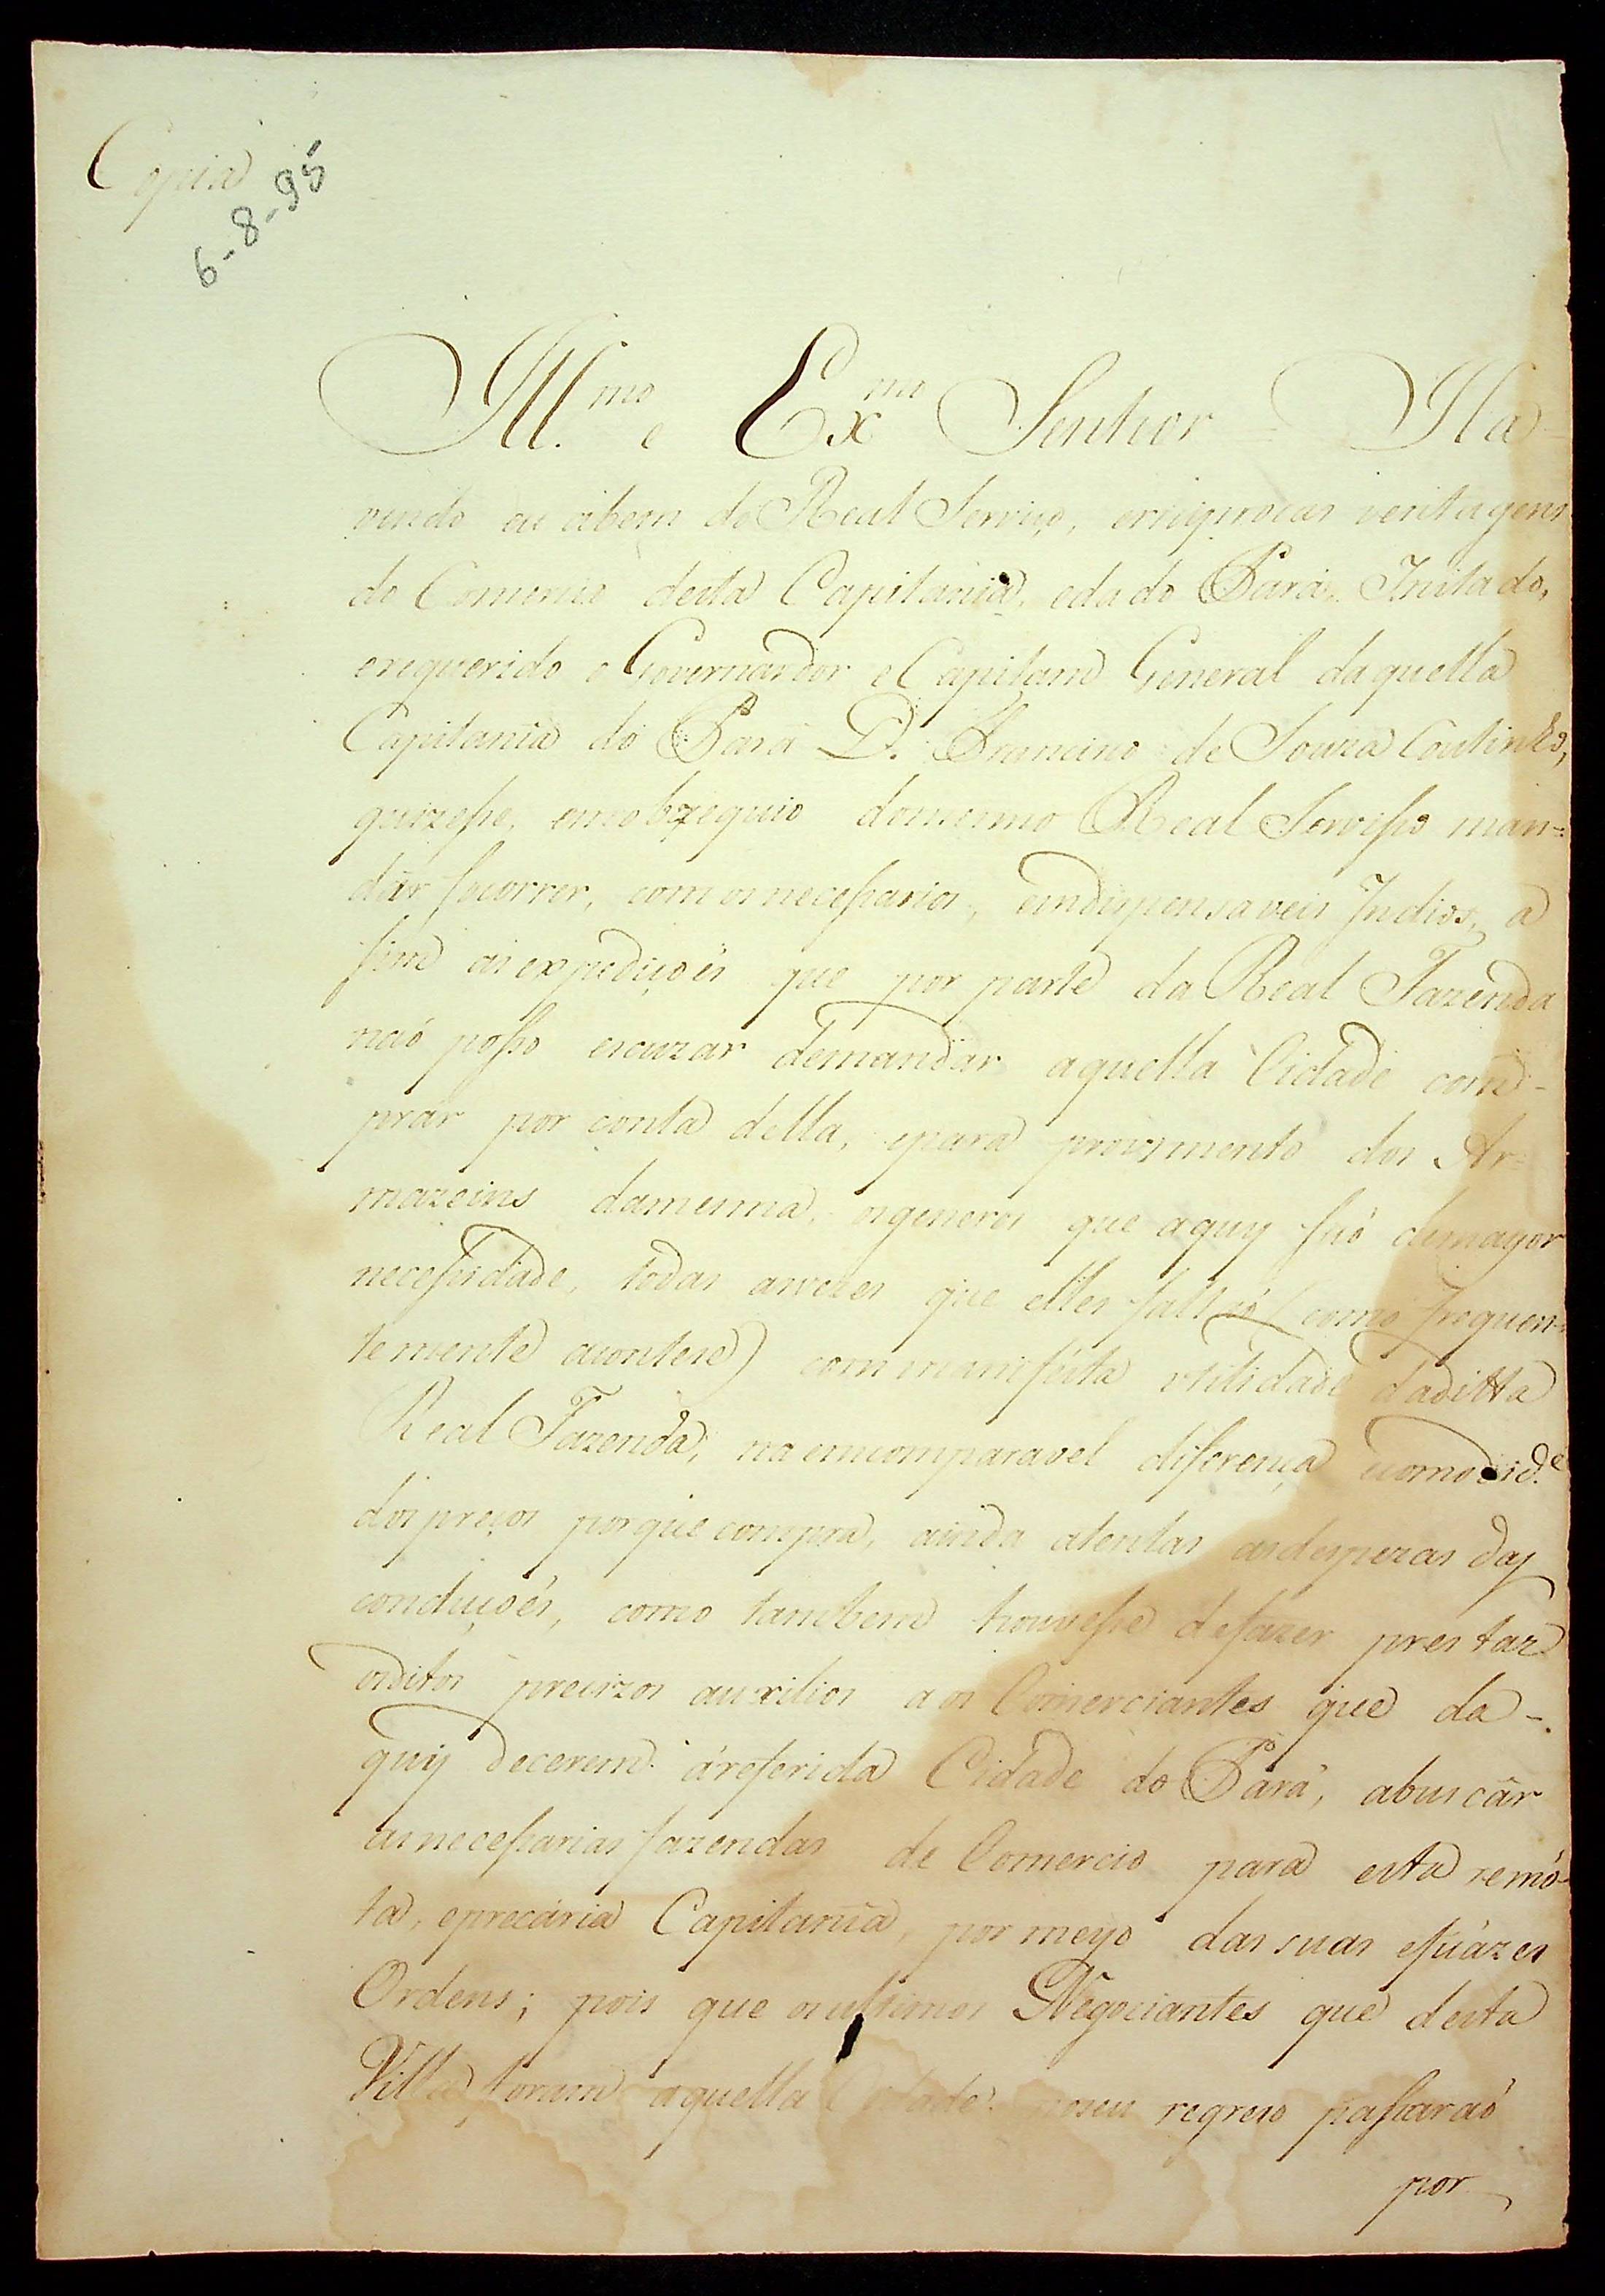 Copia
6-8-95
Ill.mo e Ex.mo Senhor - Ha-
vendo eu abem do Real Serviço, ereciprocas ventagens
do Comercio desta Capitania, eda do Pará, Instado,
erequerido o Governador e Capitam General daquella
Capitania do Pará D. Francisco de Souza Coutinho,
quizesse, emobzequio domesmo Real Servisso man=
dar socorrer, com osnecessarios, eindispensaveis Indios, a
fim as expediçoés que por parte da Real Fazenda
naó posso escuzar demandar aquella Cidade com-
prar por conta della, epara provimento dos Ar=
mazeins damesma, osgeneros que aquy saó demayor
necessidade, todas asvezes que elles faltaó (como frequen=
temente acontese) com manifésta utilidade daditta
Real Fazenda, na emcomparavel diferença ecomodid.e
dospreços porque compra, ainda atentas asdespezas das
conduçoés, como tambem houvesse defazer prestar
osditos precizos auxilios aos Comerciantes que da-
quy decerem áreferida Cidade do Pará, abuscár
asnecessarias fazendas de Comercio para esta remó-
ta, eprecária Capitania, por meyo das suas eficázes
Ordens; pois que osultimos Negociantes que desta
Villa foram aquella Cidade noseu regreso passaraó
por